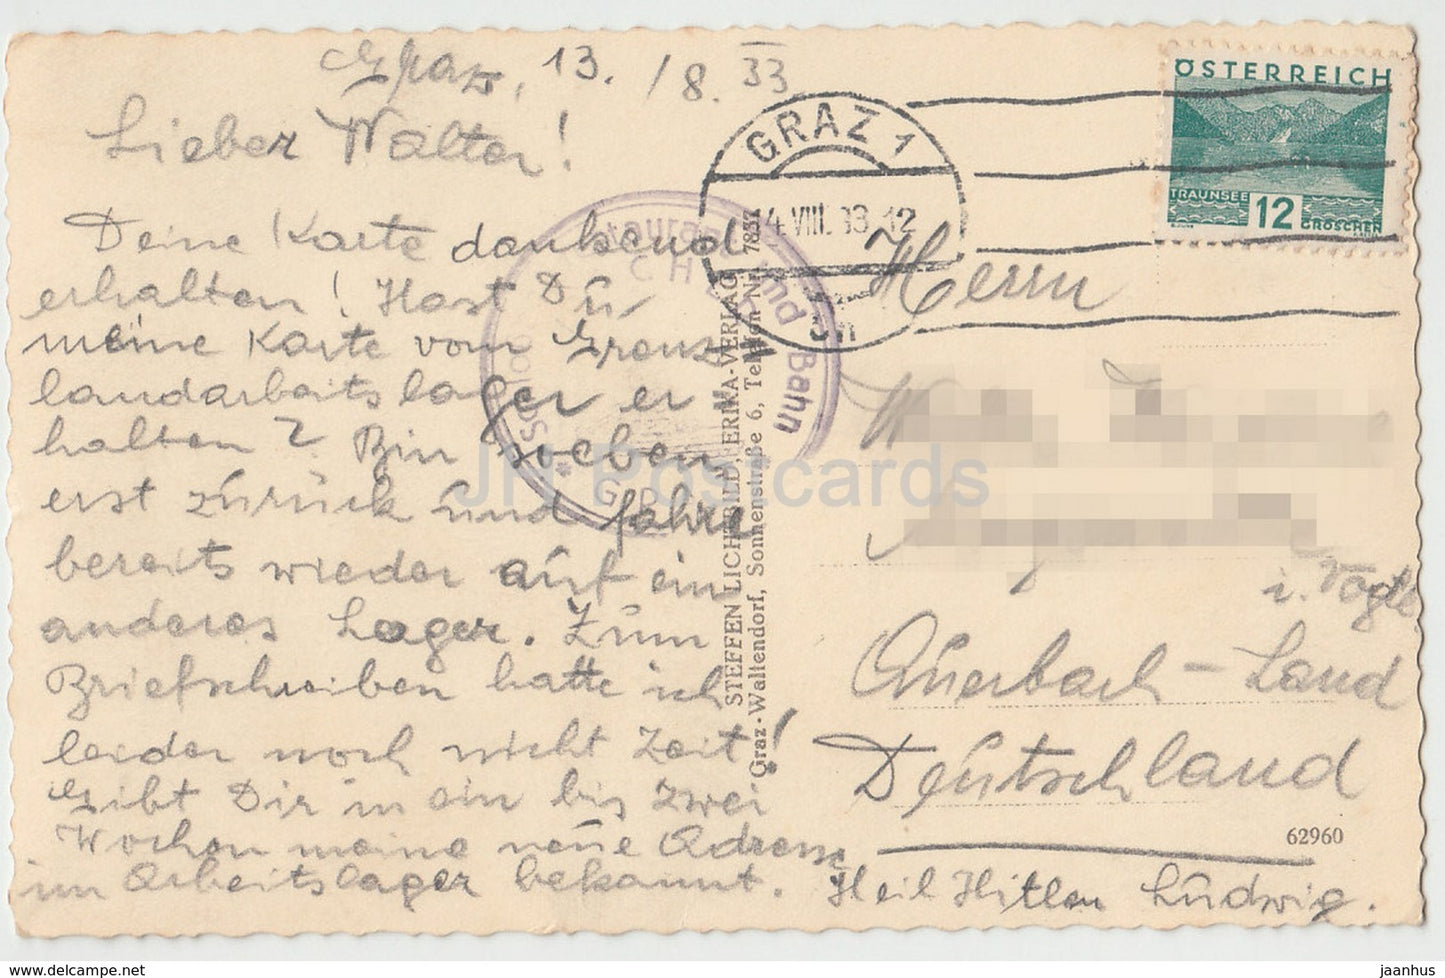 Graz, 13. / 8. 33
Lieber Walter!
Deine Karte dankend
erhalten! Hast Du
meine Karte vom Grenz
landarbeitslager er
halten? Bin soeben
erst zurück und fahre
bereits wieder auf ein
anderes Lager. Zum
Briefschreiben hatte ich
leider noch nicht Zeit!
Gibt Dir in ein bis zwei
Wochen meine neue Adresse
im Arbeitslager bekannt. Heil Hitler Ludwig.
GRAZ 1
14.VIII.33.12
ÖSTERREICH
TRAUNSEE
12 GROSCHEN
und Bahn
Schloss
STEFFEN LICHTBILD, ERIKA-VERLAG
Graz-Waltendorf, Sonnenstraße 6, Telefon Nr. 7837
Herrn
i. Vogtl
Auerbach - Land
Deutschland
62960
JH Postcards
© https://www.delcampe.net
jaanhus